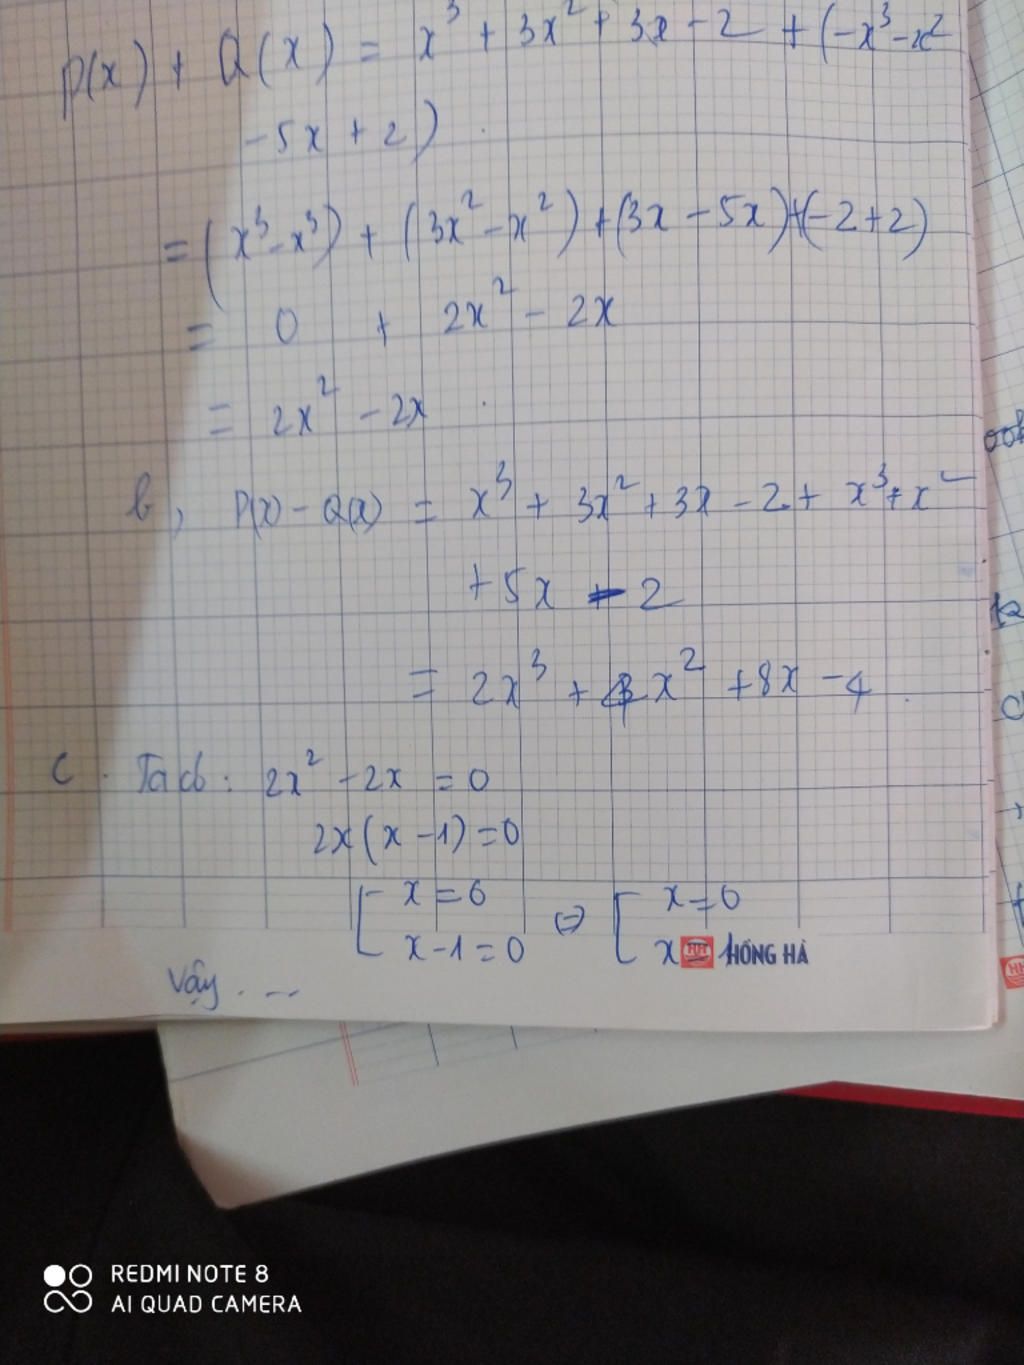 P(x) + Q(x) = x³ + 3x² + 3x - 2 + (-x³ - x²
- 5x + 2).
= (x³ - x³) + (3x² - x²) + (3x - 5x) + (-2 + 2)
= 0 + 2x² - 2x
= 2x² - 2x.
b, P(x) - Q(x) = x³ + 3x² + 3x - 2 + x³ + x²
+ 5x - 2
= 2x³ + 4x² + 8x - 4.
C. Ta có: 2x² - 2x = 0
2x(x - 1) = 0
[ x = 0 ⇔ [ x = 0
x - 1 = 0 x = 1
HH HỒNG HÀ
Vậy ...
REDMI NOTE 8
AI QUAD CAMERA